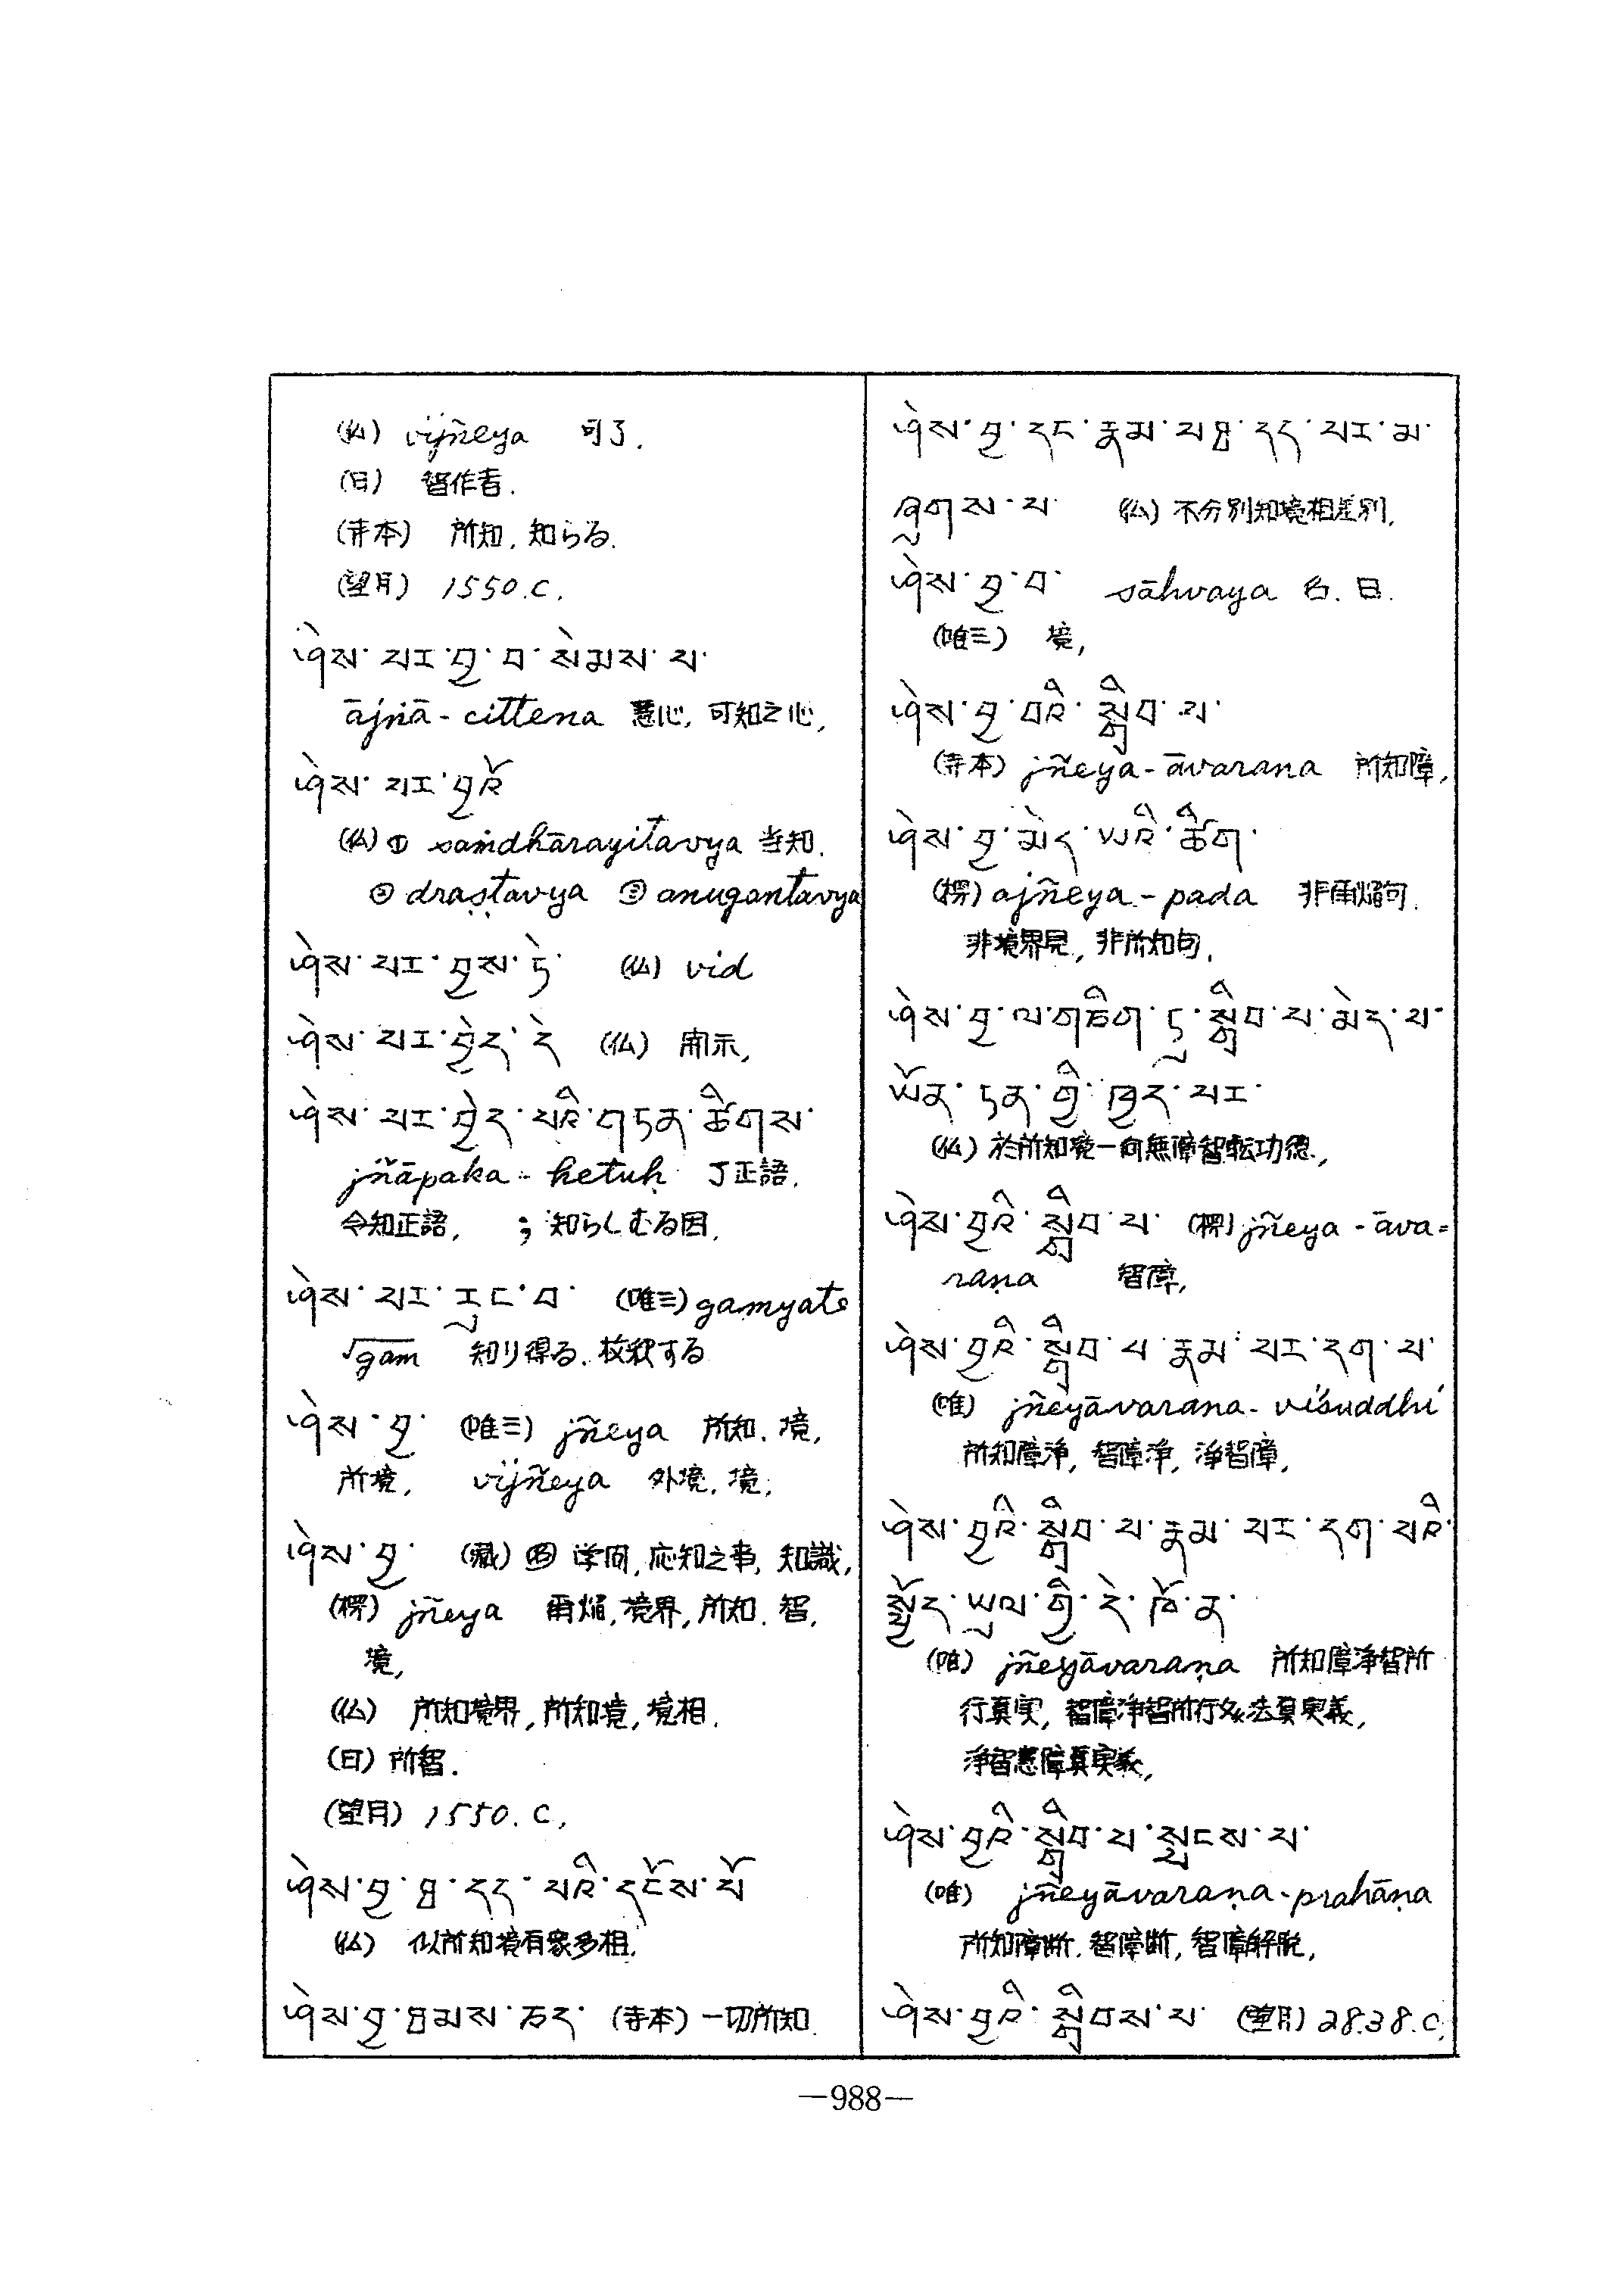 (仏) vijñeya 可了.
(日) 智作者.
(寺本) 所知, 知らる.
(望月) 1550.C,
ཤེས་པར་བྱ་བ་སེམས་པ་
ājñā-cittena 慧心, 可知之心,
ཤེས་པར་བྱའོ
(仏) ① saṁdhārayitavya 当知.
② draṣṭavya ③ anugantavya
ཤེས་པར་བྱས་ཏེ་ (仏) vid
ཤེས་པར་བྱེད་དེ (仏) 開示,
ཤེས་པར་བྱེད་པའི་གཏན་ཚིགས་
jñāpaka-hetuḥ 了正語,
令知正語, ; 知らしむる因,
ཤེས་པར་རུང་བ་ (唯三) gamyate
√gam 知り得る. 枚釈する
ཤེས་བྱ་ (唯三) jñeya 所知, 境,
所境, vijñeya 外境, 境,
ཤེས་བྱ་ (蔵) 図 学問, 応知之事, 知識,
(楞) jñeya 爾焔, 境界, 所知, 智,
境,
(仏) 所知境界, 所知境, 境相.
(日) 所智.
(望月) 1550.C,
ཤེས་བྱ་ཐ་དད་པའི་དངོས་པོ
(仏) 似所知境有衆多相.
ཤེས་བྱ་ཐམས་ཅད་ (寺本) 一切所知.
ཤེས་བྱ་དང་རྣམ་པ་ཐ་དད་པར་མ་
ཞུགས་པ་ (仏) 不分別知境相差別,
ཤེས་བྱ་བ་ sāhvaya 名. 曰.
(唯三) 境,
ཤེས་བྱ་བའི་སྒྲིབ་པ་
(寺本) jñeya-āvarana 所知障,
ཤེས་བྱ་མེད་པའི་ཚིག་
(楞) ajñeya-pada 非爾焔句.
非境界見, 非所知句,
ཤེས་བྱ་ལ་གཅིག་ཏུ་སྒྲིབ་པ་མེད་པ་
ཡོན་ཏན་གྱི་ཁྱད་པར་
(仏) 於所知境一向無障智転功徳,
ཤེས་བྱའི་སྒྲིབ་པ་ (楞) jñeya-āva=
raṇa 智障,
ཤེས་བྱའི་སྒྲིབ་པ་རྣམ་པར་དག་པ་
(唯) jñeyāvarana-viśuddhi
所知障浄, 智障浄, 浄智障,
ཤེས་བྱའི་སྒྲིབ་པ་རྣམ་པར་དག་པའི་
སྤྱོད་ཡུལ་གྱི་དེ་ཁོ་ན་
(唯) jñeyāvaraṇa 所知障浄智所
行真実, 智障浄智所行処法真実義,
浄智慧障真実義,
ཤེས་བྱའི་སྒྲིབ་པ་སྤངས་པ་
(唯) jñeyāvaraṇa-prahāṇa
所知障断. 智障断, 智障解脱,
ཤེས་བྱའི་སྒྲིབས་པ་ (望月) 2838.C,
—988—